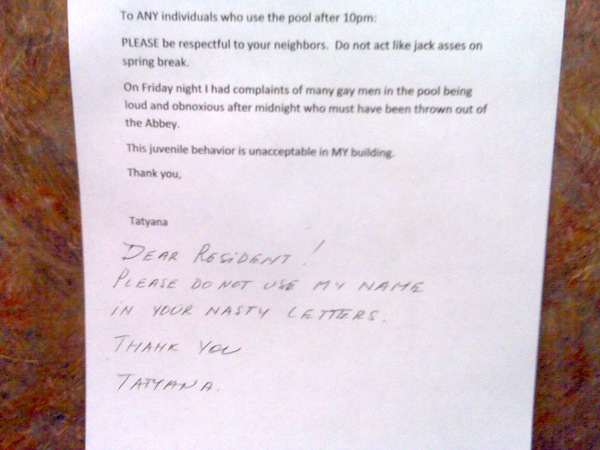 To ANY individuals who use the pool after 10pm:
PLEASE be respectful to your neighbors. Do not act like jack asses on
spring break.
On Friday night I had complaints of many gay men in the pool being
loud and obnoxious after midnight who must have been thrown out of
the Abbey.
This juvenile behavior is unacceptable in MY building.
Thank you,
Tatyana
DEAR RESIDENT!
PLEASE DO NOT USE MY NAME
IN YOUR NASTY LETTERS.
THANK YOU
TATYANA.